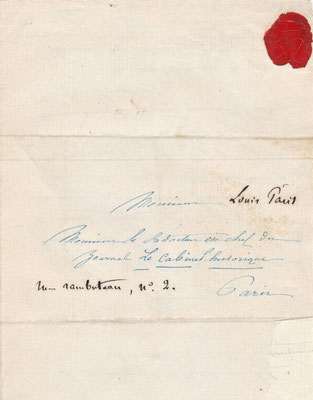 Monsieur Louis Paris
Monsieur le Rédacteur en chef du
Journal Le Cabinet historique
rambuteau, nº. 2.
Paris